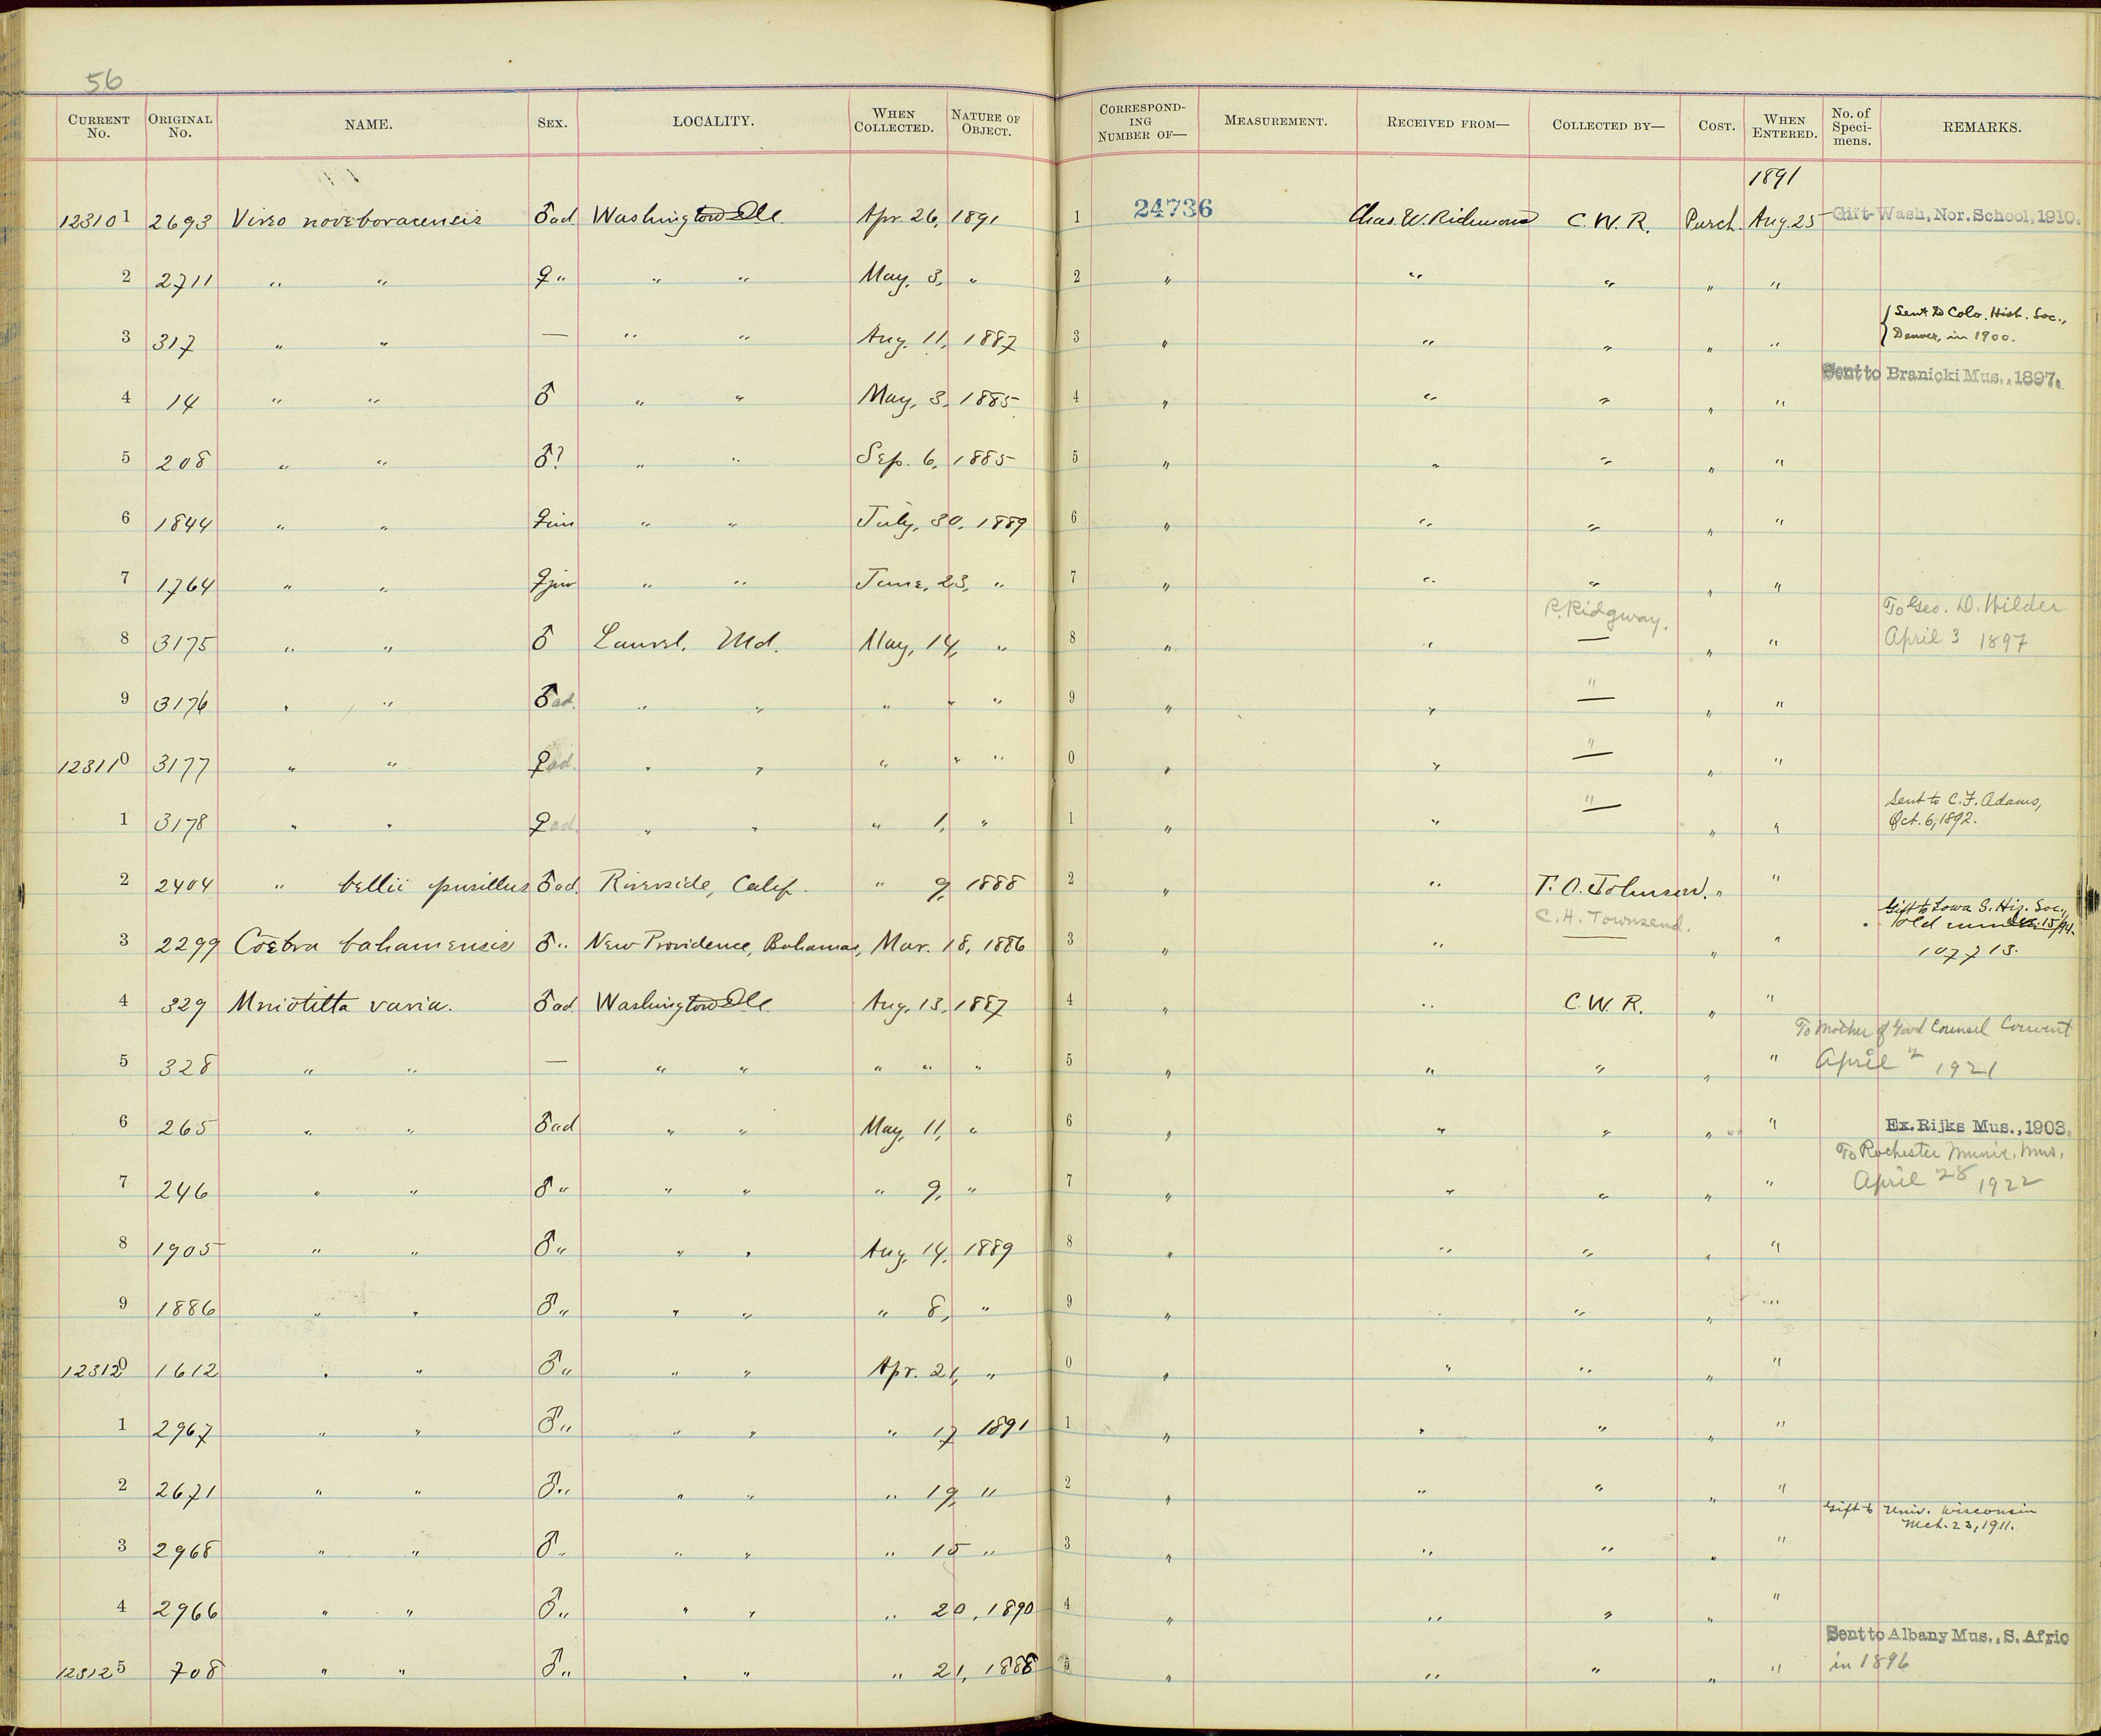 56
CURRENT No. ORIGINAL No. NAME. SEX. LOCALITY. WHEN COLLECTED. NATURE OF OBJECT. CORRESPOND-ING NUMBER OF— MEASUREMENT. RECEIVED FROM— COLLECTED BY— COST. WHEN ENTERED. No. of Speci-mens. REMARKS.
1891
123101 2693 Vireo noveboracensis ♂ad. Washington D.C. Apr. 26, 1891 1 24736 Chas. W. Richmond C. W. R. Purch. Aug. 25 Gift-Wash, Nor. School, 1910.
2 2711 " " ♀ " " " May, 3, " 2 " " " " "
3 317 " " — " " Aug. 11, 1887 3 " " " " " {Sent to Colo. Hist. Soc.,
Denver, in 1900.
Sent to Branicki Mus., 1897.
4 14 " " ♂ " " May, 3, 1885 4 " " " " "
5 208 " " ♂? " " Sep. 6, 1885 5 " " " " "
6 1844 " " ♀im " " July, 30, 1889 6 " " " " "
7 1764 " " ♀juv " " June, 23, " 7 " " " " "
R. Ridgway. To Geo. D. Wilder
8 3175 " " ♂ Laurel, Md. May, 14, " 8 " " — " " April 3 1897
9 3176 " " ♂ad. " " " " " 9 " " " — " "
123110 3177 " " ♀ad. " " " " " 0 " " " — " "
Sent to C. F. Adams,
1 3178 " " ♀ad. " " " 1, " 1 " " " — " " Oct. 6, 1892.
2 2404 " bellii pusillus ♂ad. Riverside, Calif. " 9, 1888 2 " " T. O. Johnson. " "
C. H. Townsend. Gift to Iowa S. His. Soc.,
Dec. 15/94.
3 2299 Cœreba bahamensis ♂ " New Providence, Bahamas, Mar. 18, 1886 3 " " — " " Old number
107713.
4 329 Mniotilta varia. ♂ad Washington D.C. Aug. 13, 1887 4 " " C. W. R. " "
To Mother of Good Counsel Convent
5 328 " " — " " " " " 5 " " " " " April 1921
6 265 " " ♂ad " " May, 11, " 6 " " " " " Ex. Rijks Mus., 1903.
To Rochester Munic. Mus.
7 246 " " ♂ " " " " 9, " 7 " " " " " April 28 1922
8 1905 " " ♂ " " " Aug, 14, 1889 8 " " " " "
9 1886 " " ♂ " " " " 8, " 9 " " " " "
123120 1612 " " ♂ " " " Apr. 21, " 0 " " " " "
1 2967 " " ♂ " " " " 17 1891 1 " " " " "
2 2671 " " ♂ " " " " 19, " 2 " " " " "
Gift to Univ. Wisconsin
Mch. 23, 1911.
3 2968 " " ♂ " " " " 15 " 3 " " " " "
4 2966 " " ♂ " " " " 20, 1890 4 " " " " "
Sent to Albany Mus., S. Afric
123125 708 " " ♂ " " " " 21, 1888 5 " " " " " in 1896